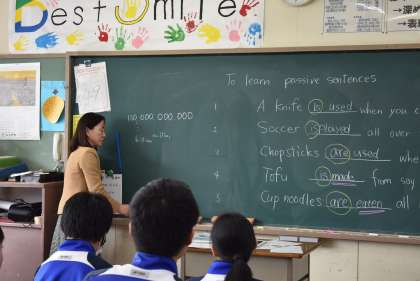 Best Smile
To learn passive sentences
110,000,000,000
1 A knife is used when you c
2 Soccer is played all over
3 Chopsticks are used whe
4 Tofu is made from soy
5 Cup noodles are eaten all